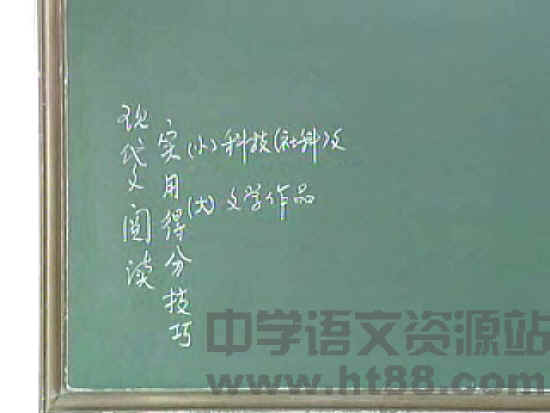 现代文阅读
实用得分技巧
(小)科技(社科)文
(大)文学作品
中学语文资源站
www.ht88.com